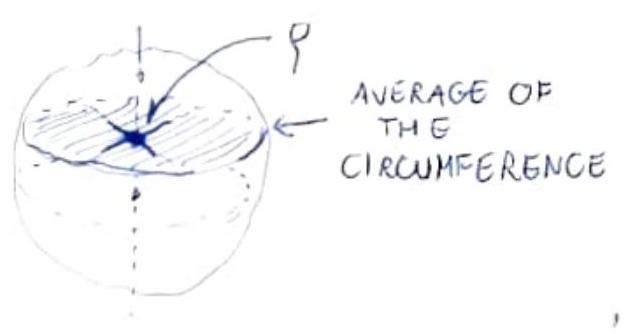 ρ
AVERAGE OF
THE
CIRCUMFERENCE